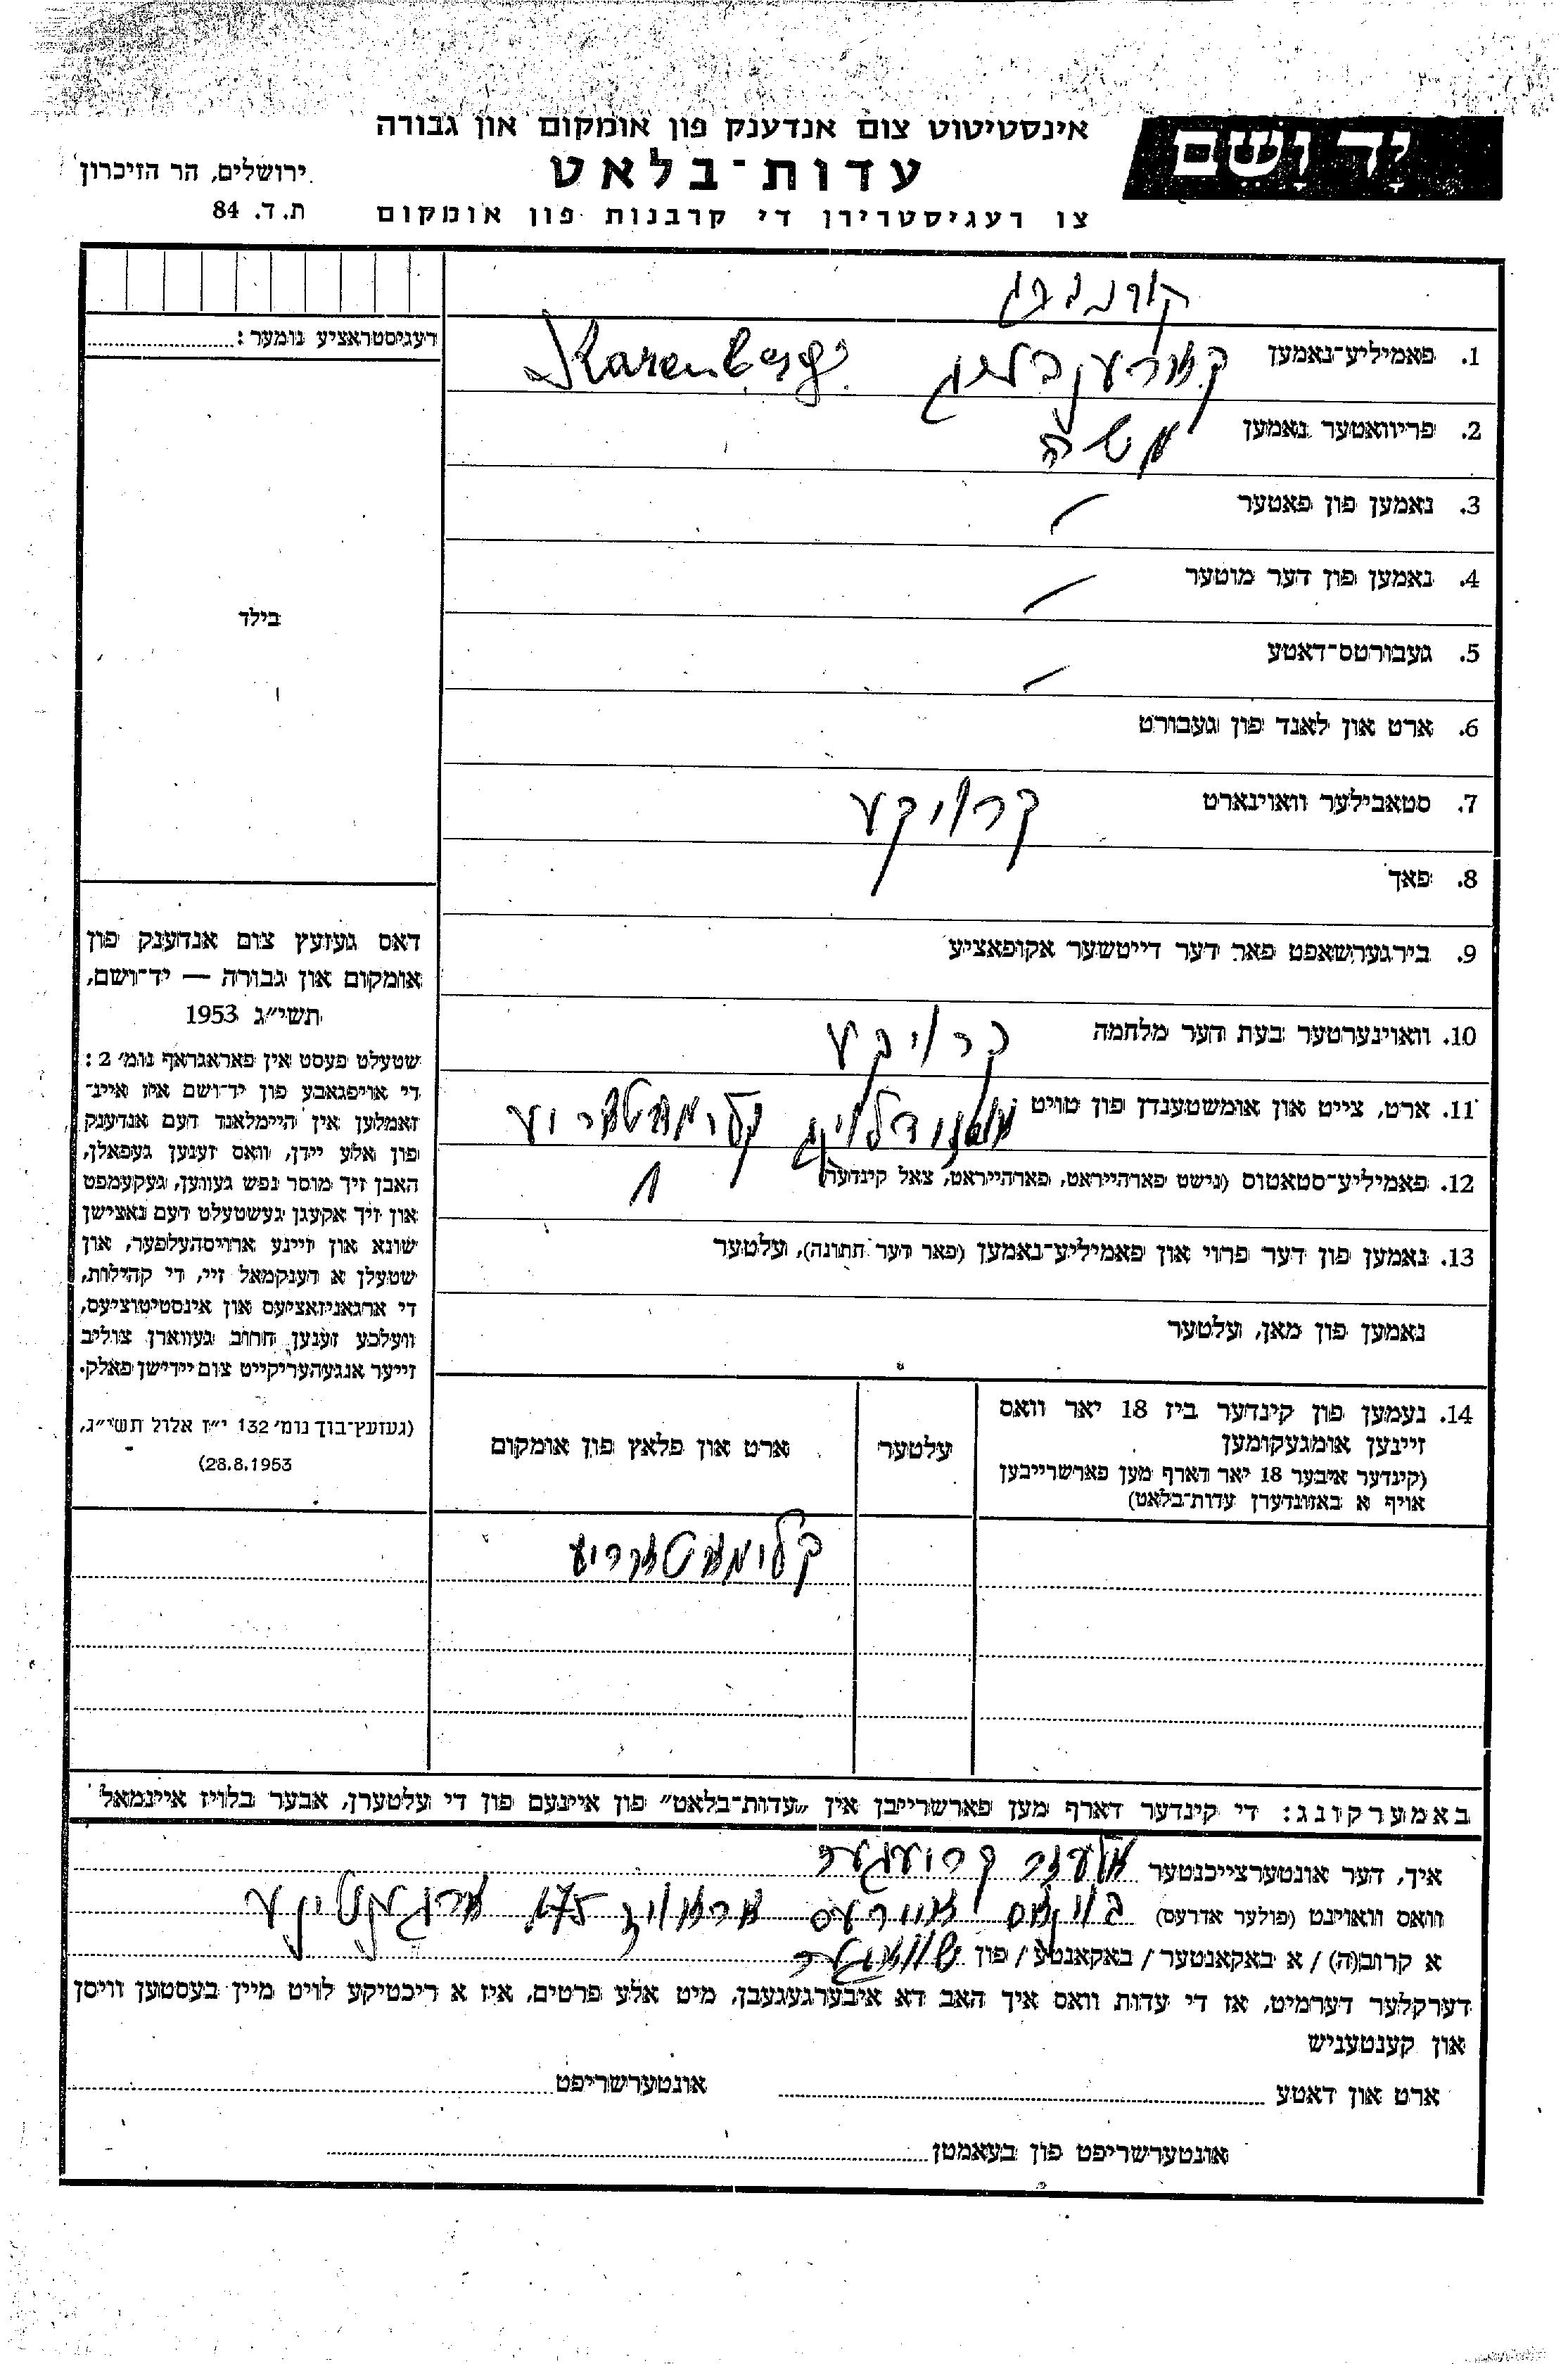 יד ושם
אינסטיטוט צום אנדענק פון אומקום און גבורה
עדות־בלאט
צו רעגיסטרירן די קרבנות פון אומקום
ירושלים, הר הזיכרון
ת. ד. 84
קורנברג
רעגיסטראציע נומער:
1. פאמיליע־נאמען Karenberg
2. פריוואטער נאמען משה
3. נאמען פון פאטער
4. נאמען פון דער מוטער
5. געבורטס־דאטע
6. ארט און לאנד פון געבורט
7. סטאבילער וואוינארט
8. פאך
9. בירגערשאפט פאר דער דייטשער אקופאציע
10. וואוינערטער בעת דער מלחמה
11. ארט, צייט און אומשטענדן פון טויט
12. פאמיליע־סטאטוס (נישט פארהייראט, פארהייראט, צאל קינדער) 1
13. נאמען פון דער פרוי און פאמיליע־נאמען (פאר דער חתונה), עלטער
נאמען פון מאן, עלטער
בילד
דאס געזעץ צום אנדענק פון
אומקום און גבורה — יד־ושם,
תשי״ג 1953
שטעלט פעסט אין פאראגראף נומ׳ 2:
די אויפגאבע פון יד־ושם איז איינ־
זאמלען אין היימלאנד דעם אנדענק
פון אלע יידן, וואס זענען געפאלן,
האבן זיך מוסר נפש געווען, געקעמפט
און זיך אקעגן געשטעלט דעם נאצישן
שונא און זיינע ארויסהעלפער, און
שטעלן א דענקמאל זיי, די קהילות,
די ארגאניזאציעס און אינסטיטוציעס,
וועלכע זענען חרוב געווארן צוליב
זייער אנגעהעריקייט צום יידישן פאלק.
(געזעץ־בוך נומ׳ 132 י״ז אלול תשי״ג,
28.8.1953)
14. נעמען פון קינדער ביז 18 יאר וואס
זיינען אומגעקומען
(קינדער איבער 18 יאר דארף מען פארשרייבען
אויף א באזונדערן עדות־בלאט)
עלטער
ארט און פלאץ פון אומקום
באמערקונג: די קינדער דארף מען פארשרייבן אין „עדות־בלאט״ פון איינעם פון די עלטערן, אבער בלויז איינמאל
איך, דער אונטערצייכנטער
וואס וואוינט (פולער אדרעס) 175
א קרוב(ה) / א באקאנטער / באקאנטע / פון שוואגער
דערקלער דערמיט, אז די עדות וואס איך האב דא איבערגעגעבן, מיט אלע פרטים, איז א ריכטיקע לויט מיין בעסטען וויסן
און קענטעניש
ארט און דאטע אונטערשריפט
אונטערשריפט פון בעאמטן